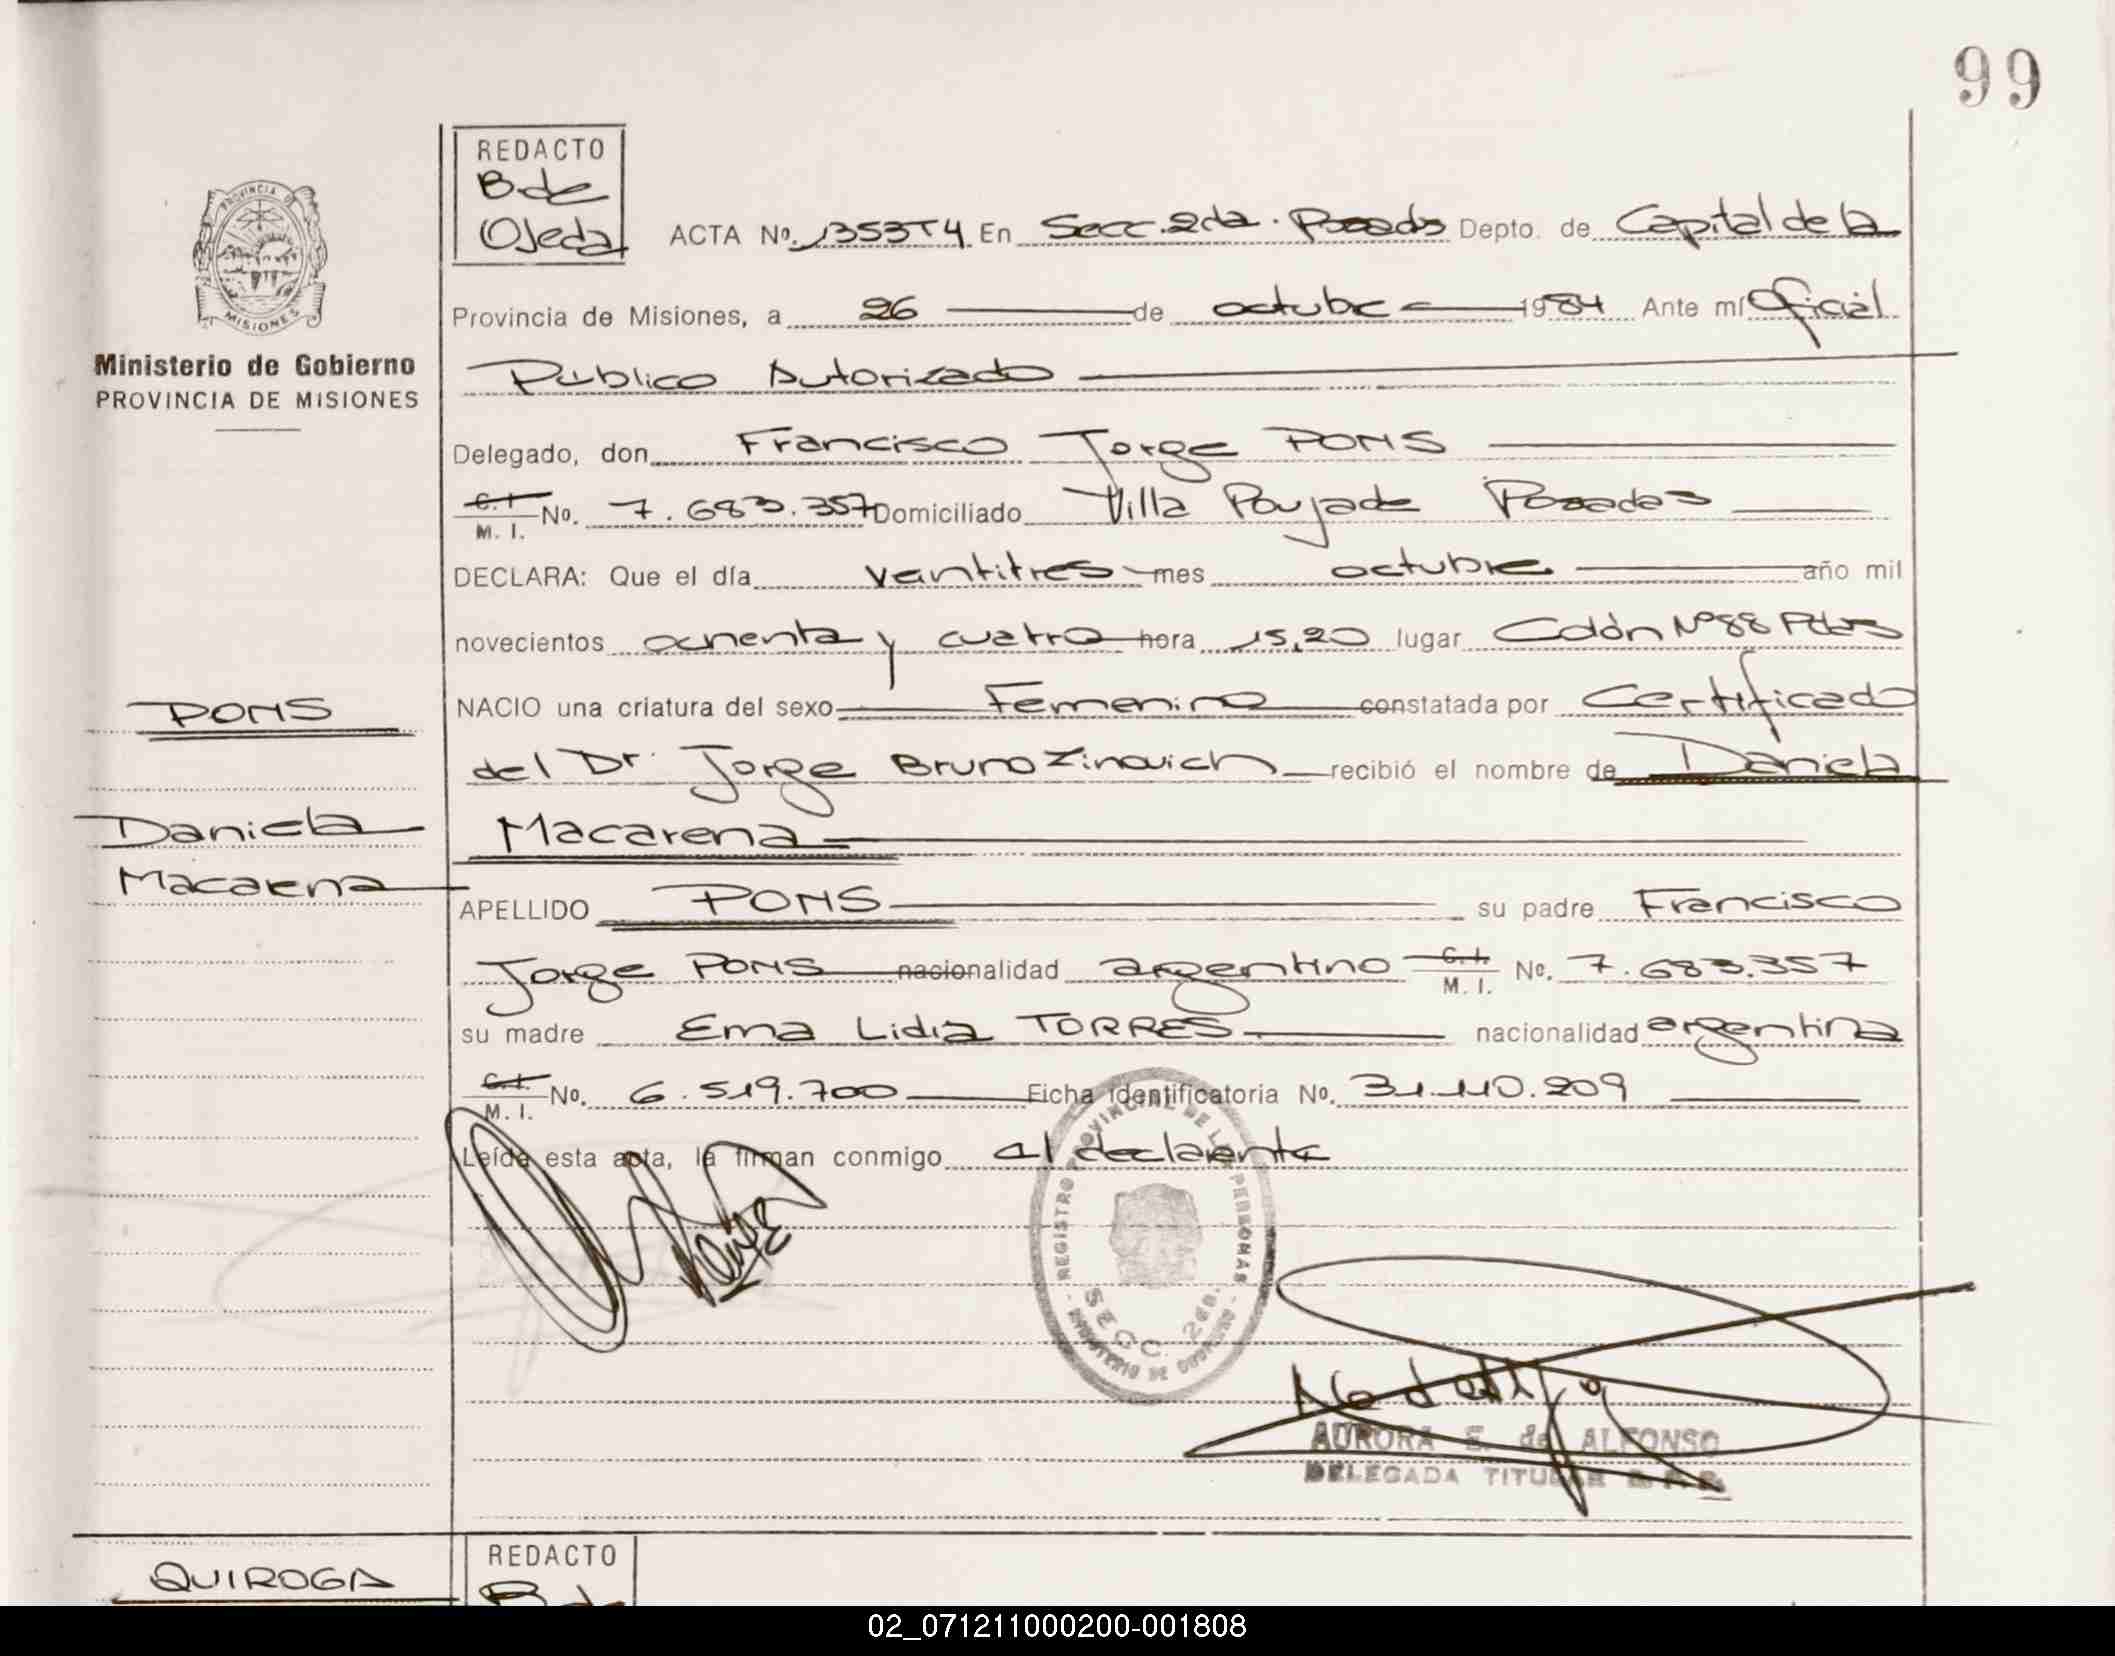 99
REDACTO
B. de
Ojeda
ACTA Nº. 1353T4 En Secc. 2da. Posadas Depto. de Capital de la
Provincia de Misiones, a 26 de octubre 1984 Ante mí Oficial
Público Autorizado
Delegado, don Francisco Jorge PONS
C. I. M. I. Nº. 7.683.357 Domiciliado Villa Poujade Posadas
DECLARA: Que el día veintitres mes octubre año mil
novecientos ochenta y cuatro hora 15,20 lugar Colón Nº 88 Pdas
NACIO una criatura del sexo Femenino constatada por Certificado
del Dr. Jorge Bruno Zinovich recibió el nombre de Daniela
Macarena
APELLIDO PONS su padre Francisco
Jorge PONS nacionalidad argentino C. I. M. I. Nº. 7.683.357
su madre Ema Lidia TORRES nacionalidad argentina
C. I. M. I. Nº. 6.519.700 Ficha identificatoria Nº. 31.110.209
Leída esta acta, la firman conmigo el declarante
PROVINCIA DE
MISIONES
Ministerio de Gobierno
PROVINCIA DE MISIONES
PONS
Daniela
Macarena
REGISTRO PROVINCIAL DE LAS PERSONAS
SECC. 2da.
MINISTERIO DE GOBIERNO
AURORA E. de ALFONSO
DELEGADA TITULAR
QUIROGA
REDACTO
02_071211000200-001808